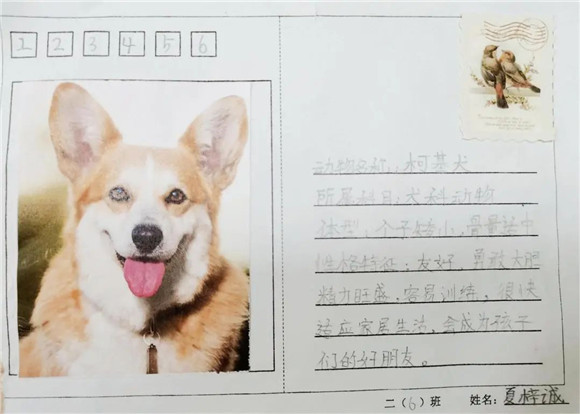 1 2 3 4 5 6
动物名称:柯基犬
所属科目:犬科动物
体型:个子矮小,骨量适中
性格特征:友好,勇敢大胆
精力旺盛,容易训练。很快
适应家居生活,会成为孩子
们的好朋友。
二(6)班 姓名:夏梓诚